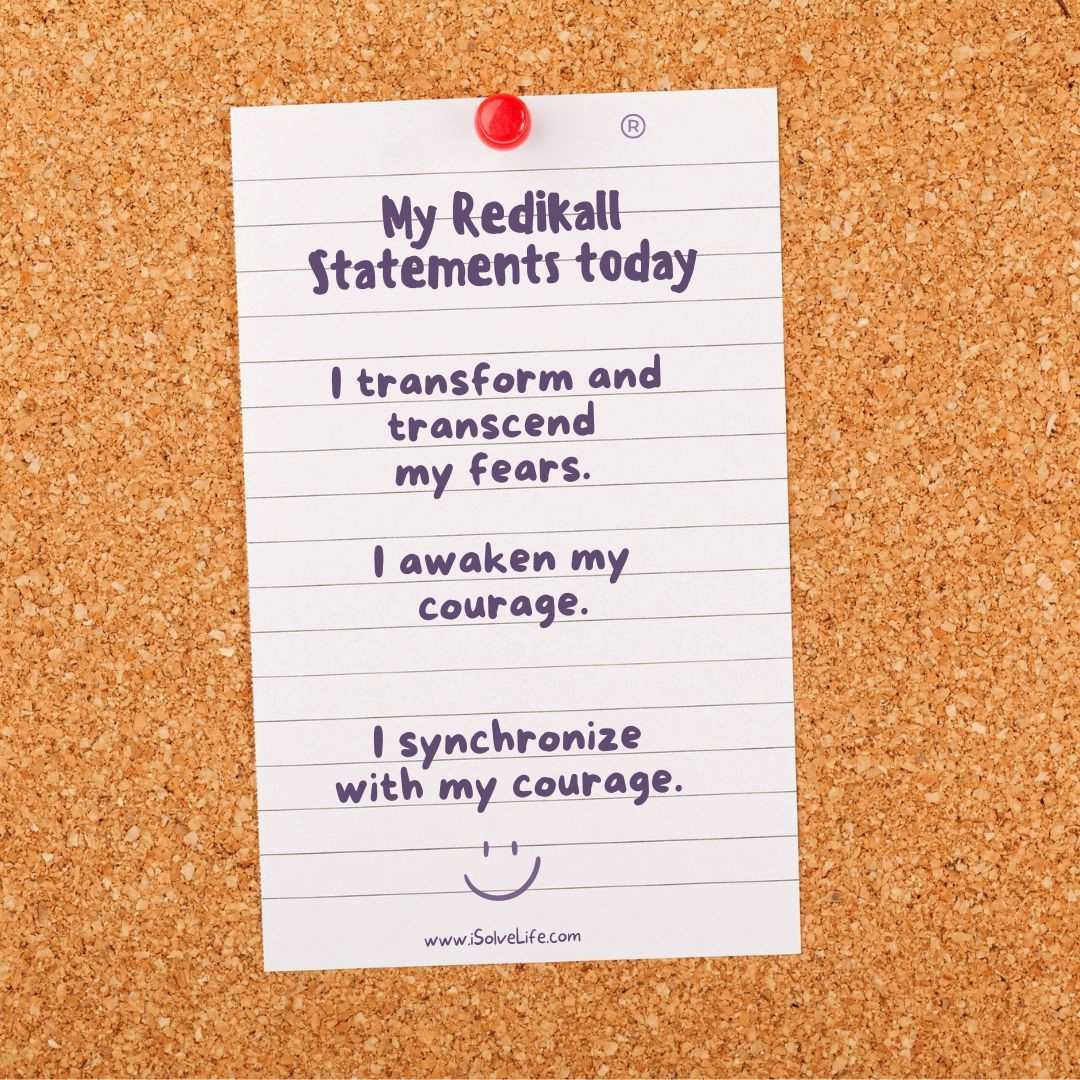 ®
My Redikall
Statements today
I transform and
transcend
my fears.
I awaken my
courage.
I synchronize
with my courage.
www.iSolveLife.com